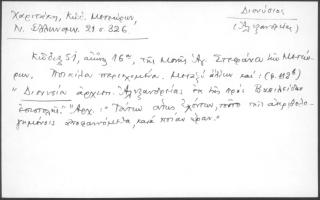 Χαριτάκη, Κώδ. Μετεώρων. Διονύσιος
Ν. Ἑλληνομν. 21 σ. 326 (Ἀλεξανδρείας)
Κῶδιξ 51, αἰῶν 16ος, τῆς Μονῆς Ἁγ. Στεφάνου τῶν Μετεώρων.
Ποικίλα περιεχόμενα. Μεταξὺ ἄλλων καὶ: (φ. 112α)
"Διονυσίου ἀρχιεπ. Ἀλεξανδρείας ἐκ τῆς πρὸς Βασιλείδην
ἐπιστολῆς." Ἀρχ.: "Τούτων οὕτως ἐχόντων, τοῦτο τοῖς ἀκριβολο-
γουμένοις ἀποφαινόμεθα, κατὰ ποίαν ὥραν."